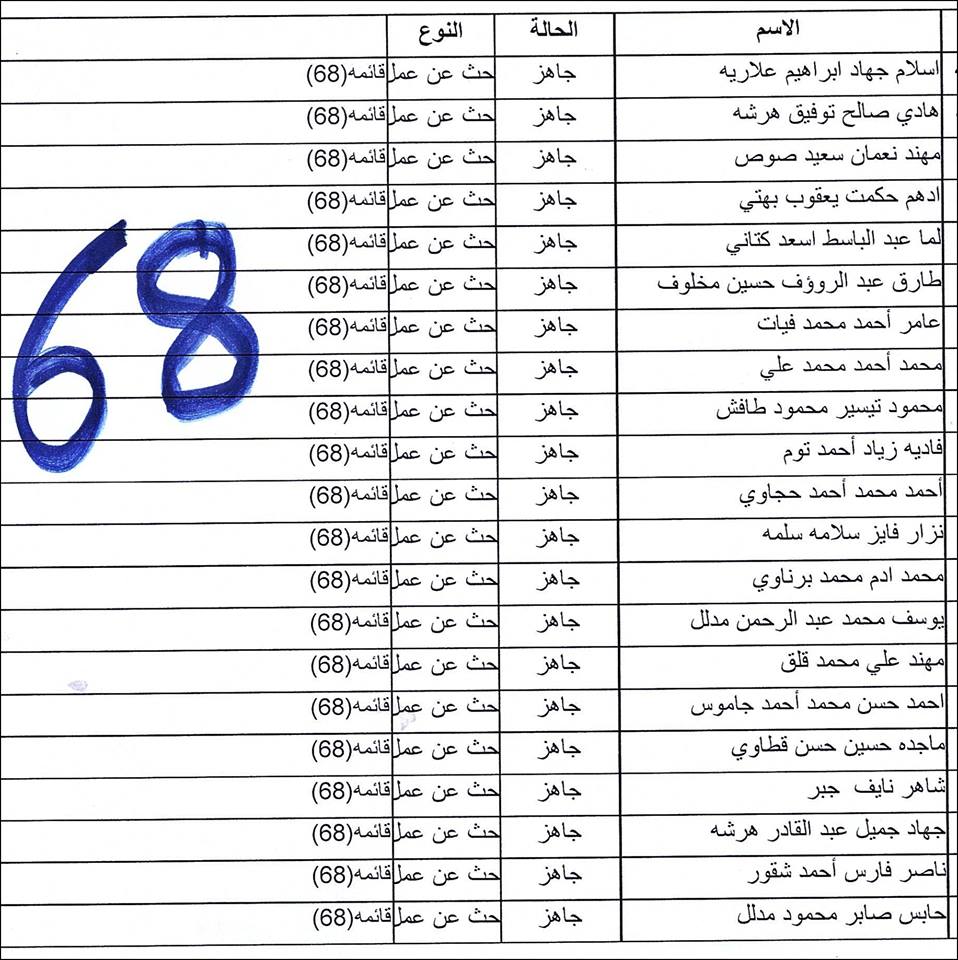 الاسم الحالة النوع
اسلام جهاد ابراهيم علاريه جاهز حث عن عمل قائمه(68)
هادي صالح توفيق هرشه جاهز حث عن عمل قائمه(68)
مهند نعمان سعيد صوص جاهز حث عن عمل قائمه(68)
ادهم حكمت يعقوب بهتي جاهز حث عن عمل قائمه(68)
لما عبد الباسط اسعد كتاني جاهز حث عن عمل قائمه(68)
طارق عبد الروؤف حسين مخلوف جاهز حث عن عمل قائمه(68)
عامر أحمد محمد فيات جاهز حث عن عمل قائمه(68)
محمد أحمد محمد علي جاهز حث عن عمل قائمه(68)
محمود تيسير محمود طافش جاهز حث عن عمل قائمه(68)
فاديه زياد أحمد توم جاهز حث عن عمل قائمه(68)
أحمد محمد أحمد حجاوي جاهز حث عن عمل قائمه(68)
نزار فايز سلامه سلمه جاهز حث عن عمل قائمه(68)
محمد ادم محمد برناوي جاهز حث عن عمل قائمه(68)
يوسف محمد عبد الرحمن مدلل جاهز حث عن عمل قائمه(68)
مهند علي محمد قلق جاهز حث عن عمل قائمه(68)
احمد حسن محمد أحمد جاموس جاهز حث عن عمل قائمه(68)
ماجده حسين حسن قطاوي جاهز حث عن عمل قائمه(68)
شاهر نايف جبر جاهز حث عن عمل قائمه(68)
جهاد جميل عبد القادر هرشه جاهز حث عن عمل قائمه(68)
ناصر فارس أحمد شقور جاهز حث عن عمل قائمه(68)
حابس صابر محمود مدلل جاهز حث عن عمل قائمه(68)
68